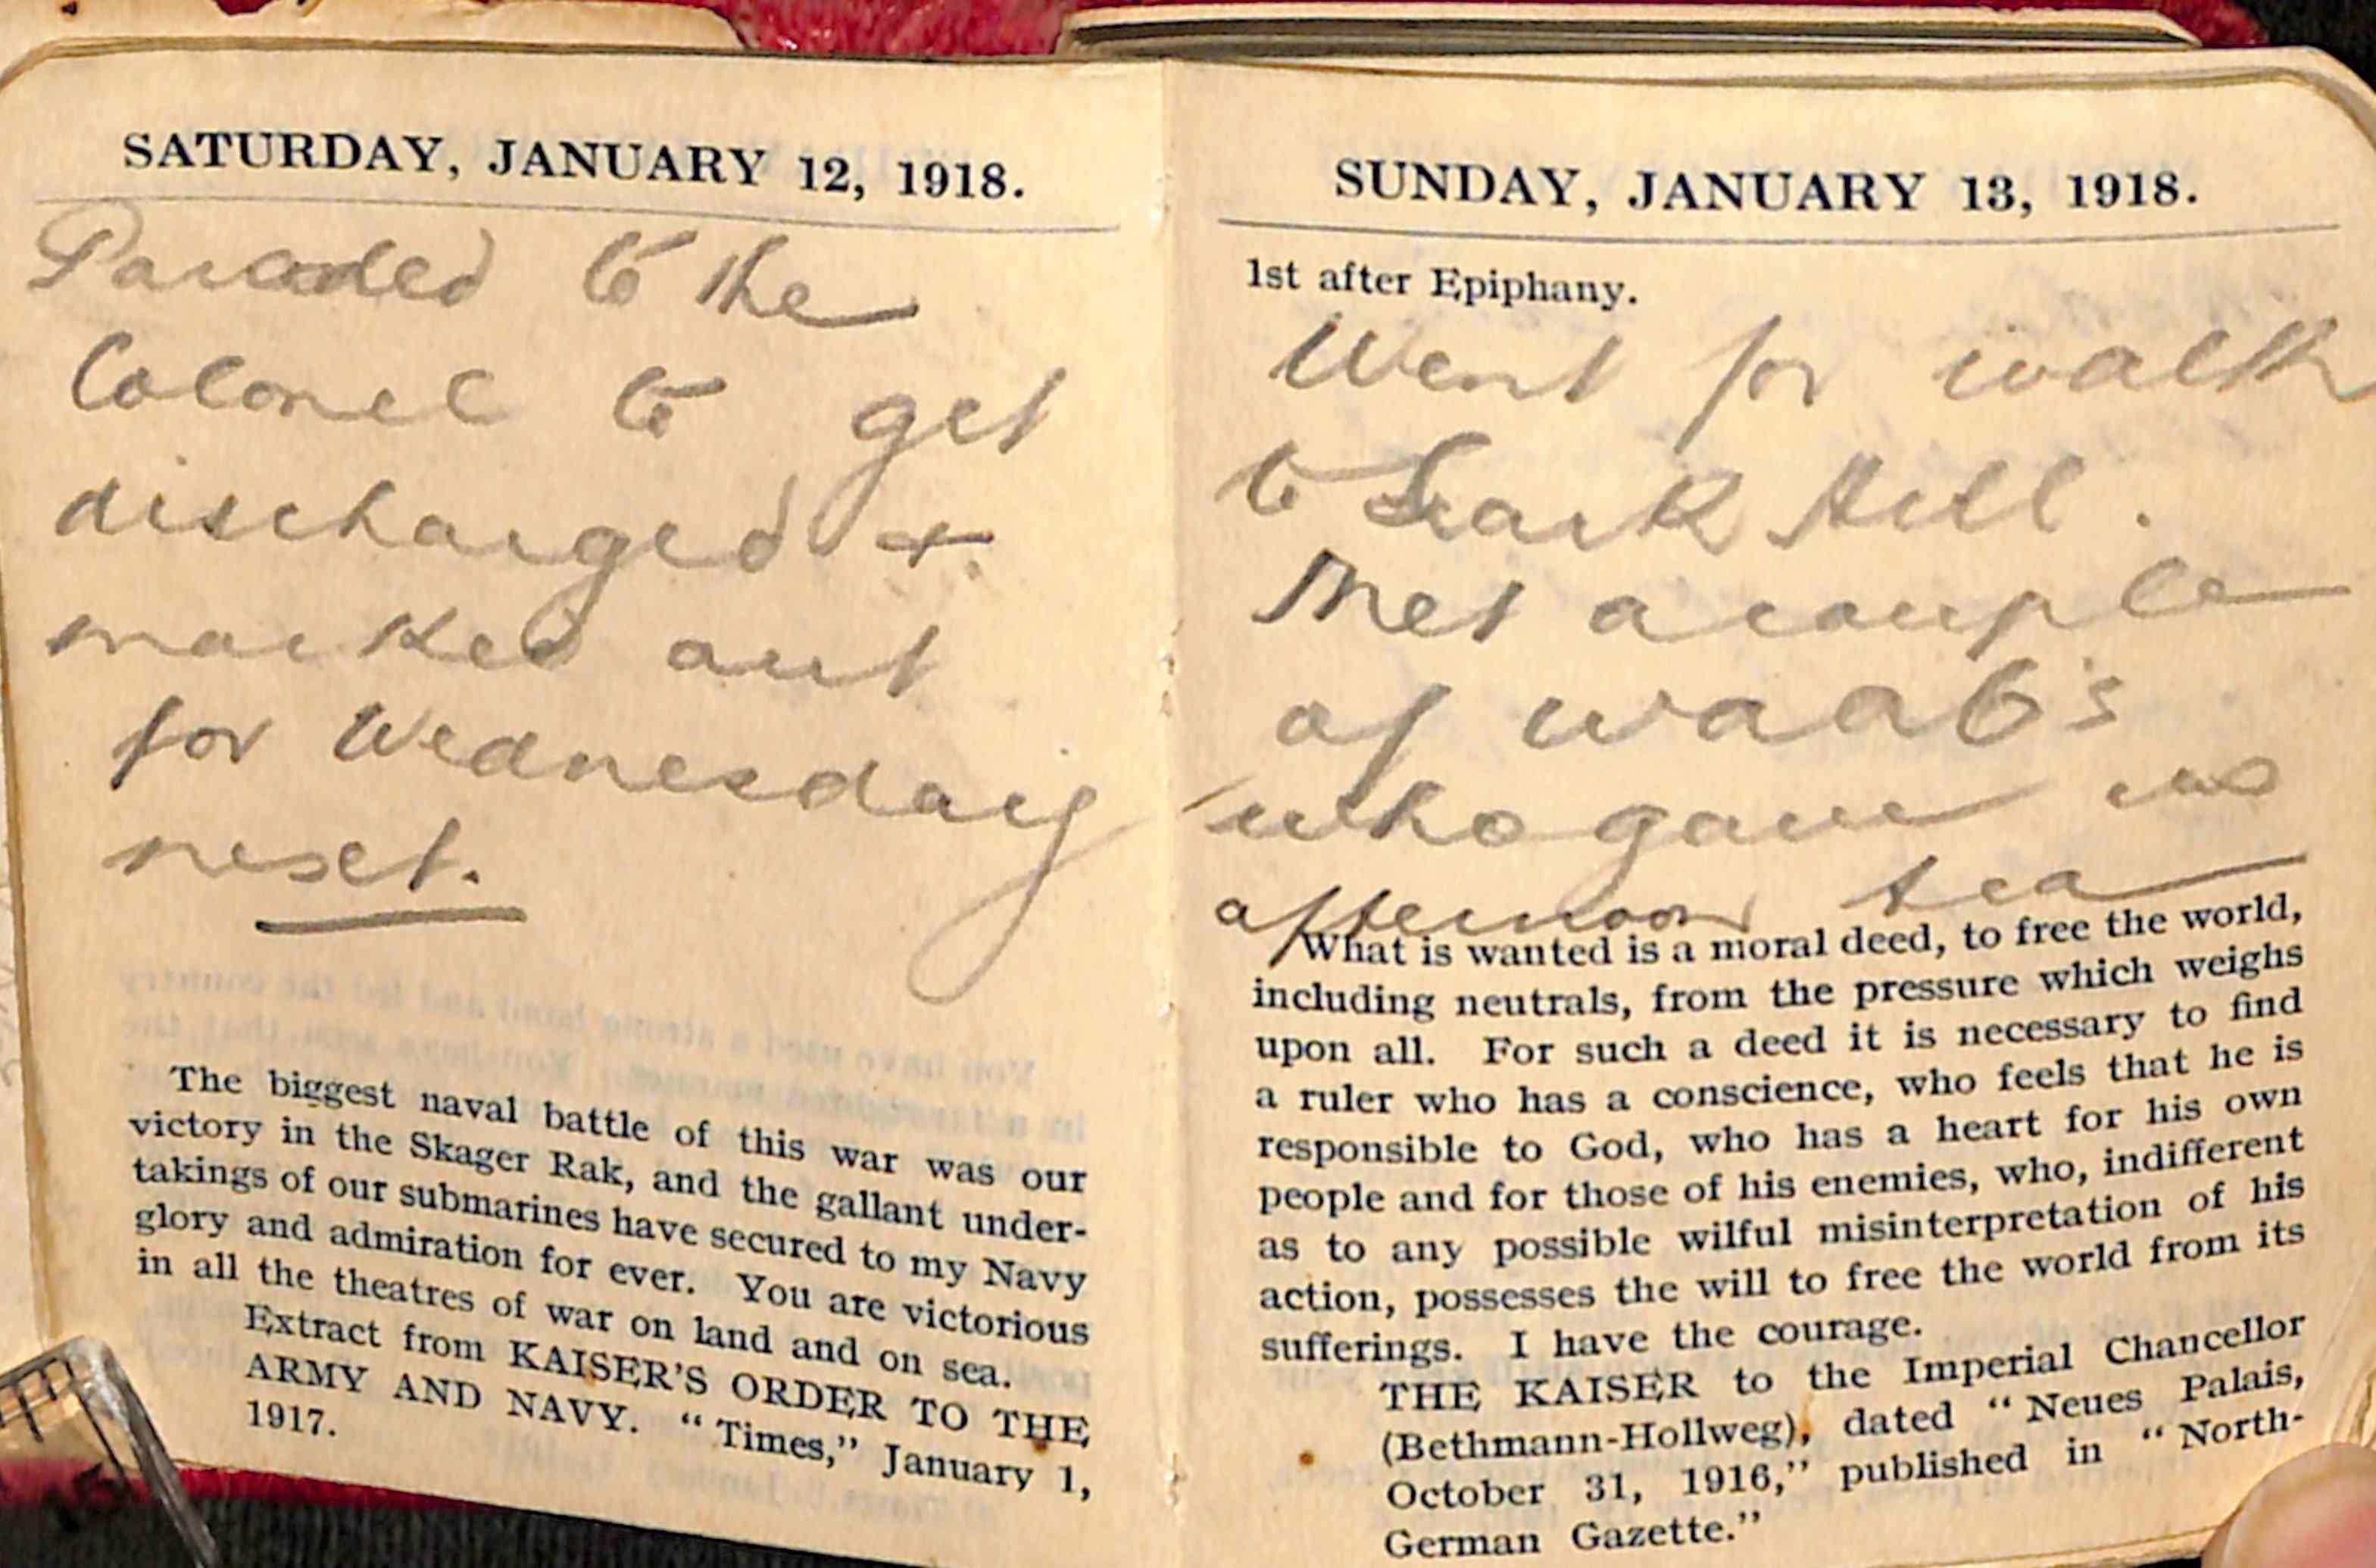 SATURDAY, JANUARY 12, 1918.
Paraded to the
Colonel to get
discharged +
marked out
for Wednesday
next.
The biggest naval battle of this war was our
victory in the Skager Rak, and the gallant under-
takings of our submarines have secured to my Navy
glory and admiration for ever. You are victorious
in all the theatres of war on land and on sea.
Extract from KAISER'S ORDER TO THE
ARMY AND NAVY. "Times," January 1,
1917.
SUNDAY, JANUARY 13, 1918.
1st after Epiphany.
Went for walk
to Lark Hill.
Met a couple
of waab's
who gave us
afternoon tea
What is wanted is a moral deed, to free the world,
including neutrals, from the pressure which weighs
upon all. For such a deed it is necessary to find
a ruler who has a conscience, who feels that he is
responsible to God, who has a heart for his own
people and for those of his enemies, who, indifferent
as to any possible wilful misinterpretation of his
action, possesses the will to free the world from its
sufferings. I have the courage.
THE KAISER to the Imperial Chancellor
(Bethmann-Hollweg), dated "Neues Palais,
October 31, 1916," published in "North-
German Gazette."